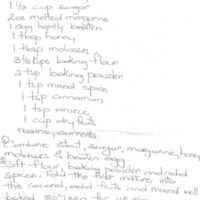 1 1/2 cup sugar
2oz melted margarine
1 egg lightly beaten
1 tbsp honey
1 tbsp molasses
3 1/2 cups baking flour
2 tsp baking powder
1 tsp mixed spice
1 tsp cinnamon
1 tsp aniece
1 cup dry fruits
combine stout, sugar, margarine, honey
molasses & beaten egg
Sift flour, baking powder and add
spices. Fold the first mixture into
the second, add fruits and mixed well